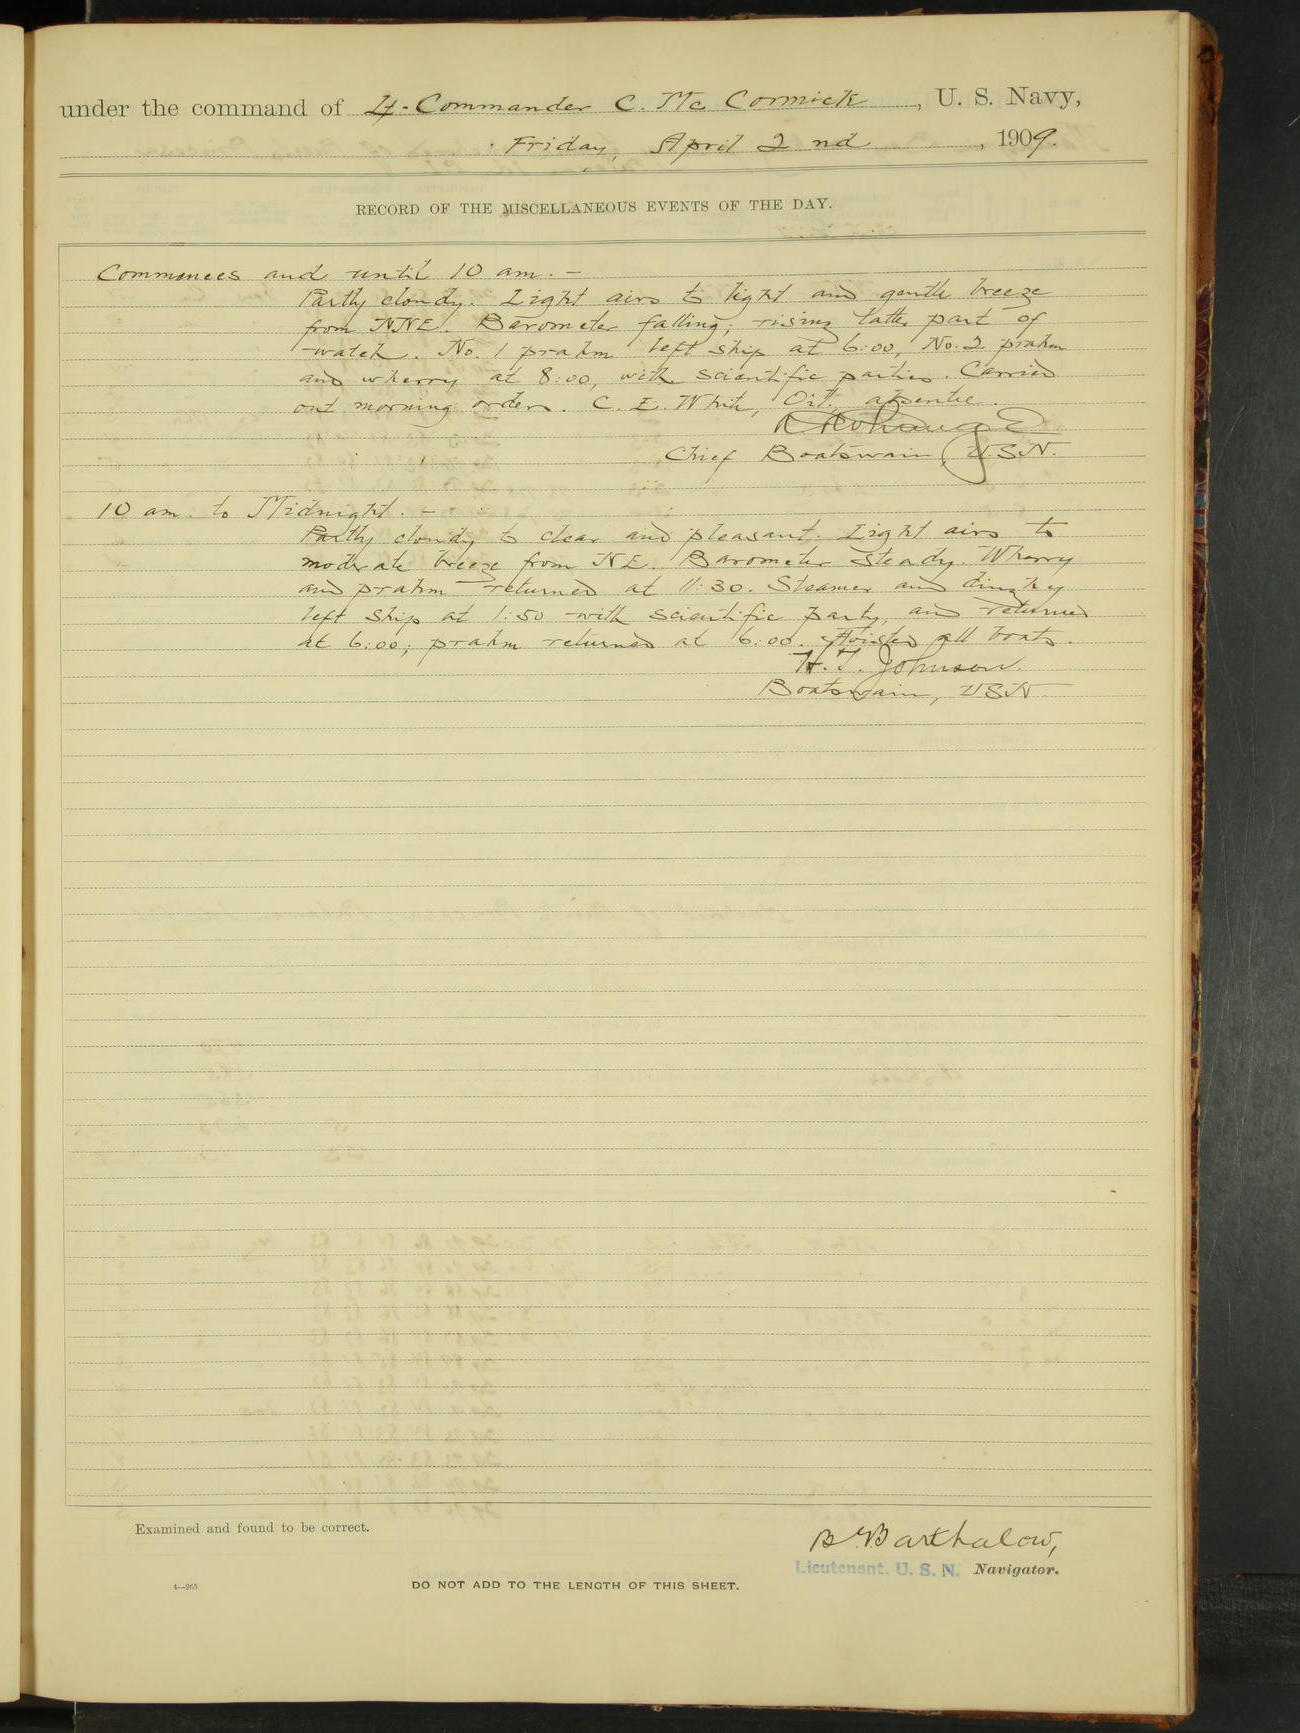 under the command of Lt-Commander C. Mc Cormick, U. S. Navy,
Friday, April 2nd, 1909.
RECORD OF THE MISCELLANEOUS EVENTS OF THE DAY.
Commences and until 10 am. -
Partly cloudy. Light airs to light and gentle breeze
from NNE. Barometer falling; rising latter part of
watch. No. 1 prahm left ship at 6:00, No. 2 prahm
and wherry at 8:00, with scientific parties. Carried
out morning orders. C. E. White, absentee.
Chief Boatswain, USN.
10 am. to Midnight. -
Partly cloudy to clear and pleasant. Light airs to
moderate breeze from NE. Barometer steady. Wherry
and prahm returned at 11:30. Steamer and dinghey
left ship at 1:50 with scientific party, and returned
at 6:00; prahm returned at 6:00. Hoisted all boats.
H. T. Johnson.
Boatswain, USN.
Examined and found to be correct.
Barthalow,
Lieutenant, U. S. N. Navigator.
4—265
DO NOT ADD TO THE LENGTH OF THIS SHEET.